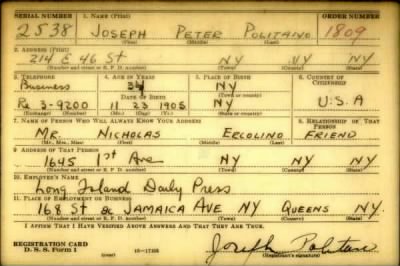 SERIAL NUMBER 1. NAME (Print) ORDER NUMBER
2538 JOSEPH PETER POLITANO 1809
(First) (Middle) (Last)
2. ADDRESS (Print)
214 E 46 St NY NY NY
(Number and street or R. F. D. number) (Town) (County) (State)
3. TELEPHONE 4. AGE IN YEARS 5. PLACE OF BIRTH 6. COUNTRY OF CITIZENSHIP
Business 34 NY
DATE OF BIRTH (Town or county)
3-9200 11 23 1905 NY U.S.A
(Exchange) (Number) (Mo.) (Day) (Yr.) (State or country)
7. NAME OF PERSON WHO WILL ALWAYS KNOW YOUR ADDRESS 8. RELATIONSHIP OF THAT PERSON
MR. NICHOLAS ERCOLINO FRIEND
(Mr., Mrs., Miss) (First) (Middle) (Last)
9. ADDRESS OF THAT PERSON
1645 1st Ave NY NY NY
(Number and street or R. F. D. number) (Town) (County) (State)
10. EMPLOYER'S NAME
Long Island Daily Press
11. PLACE OF EMPLOYMENT OR BUSINESS
168 St & JAMAICA AVE NY QUEENS NY
(Number and street or R. F. D. number) (Town) (County) (State)
I AFFIRM THAT I HAVE VERIFIED ABOVE ANSWERS AND THAT THEY ARE TRUE.
REGISTRATION CARD
D. S. S. Form 1 16-17105 Joseph Politano
(Registrant's signature)